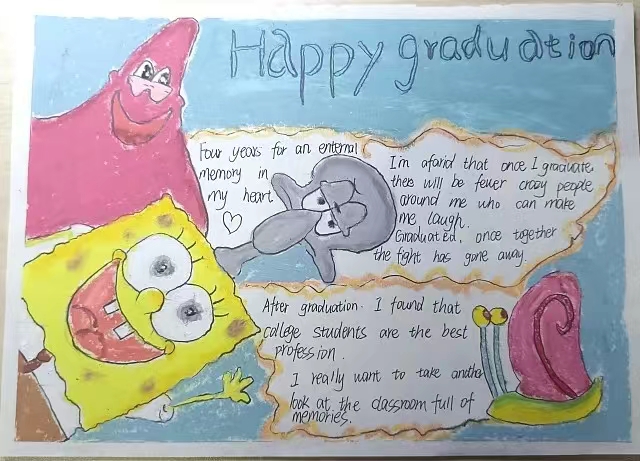 Happy graduation
Four years for an enternal
memory in
my heart
I'm afarid that once I graduate,
there will be fewer crazy people
around me who can make
me laugh.
GraduatEd, once together
the fight has gone away.
After graduation. I found that
college students are the best
profession.
I really want to take another
look at the classroom full of
memories.